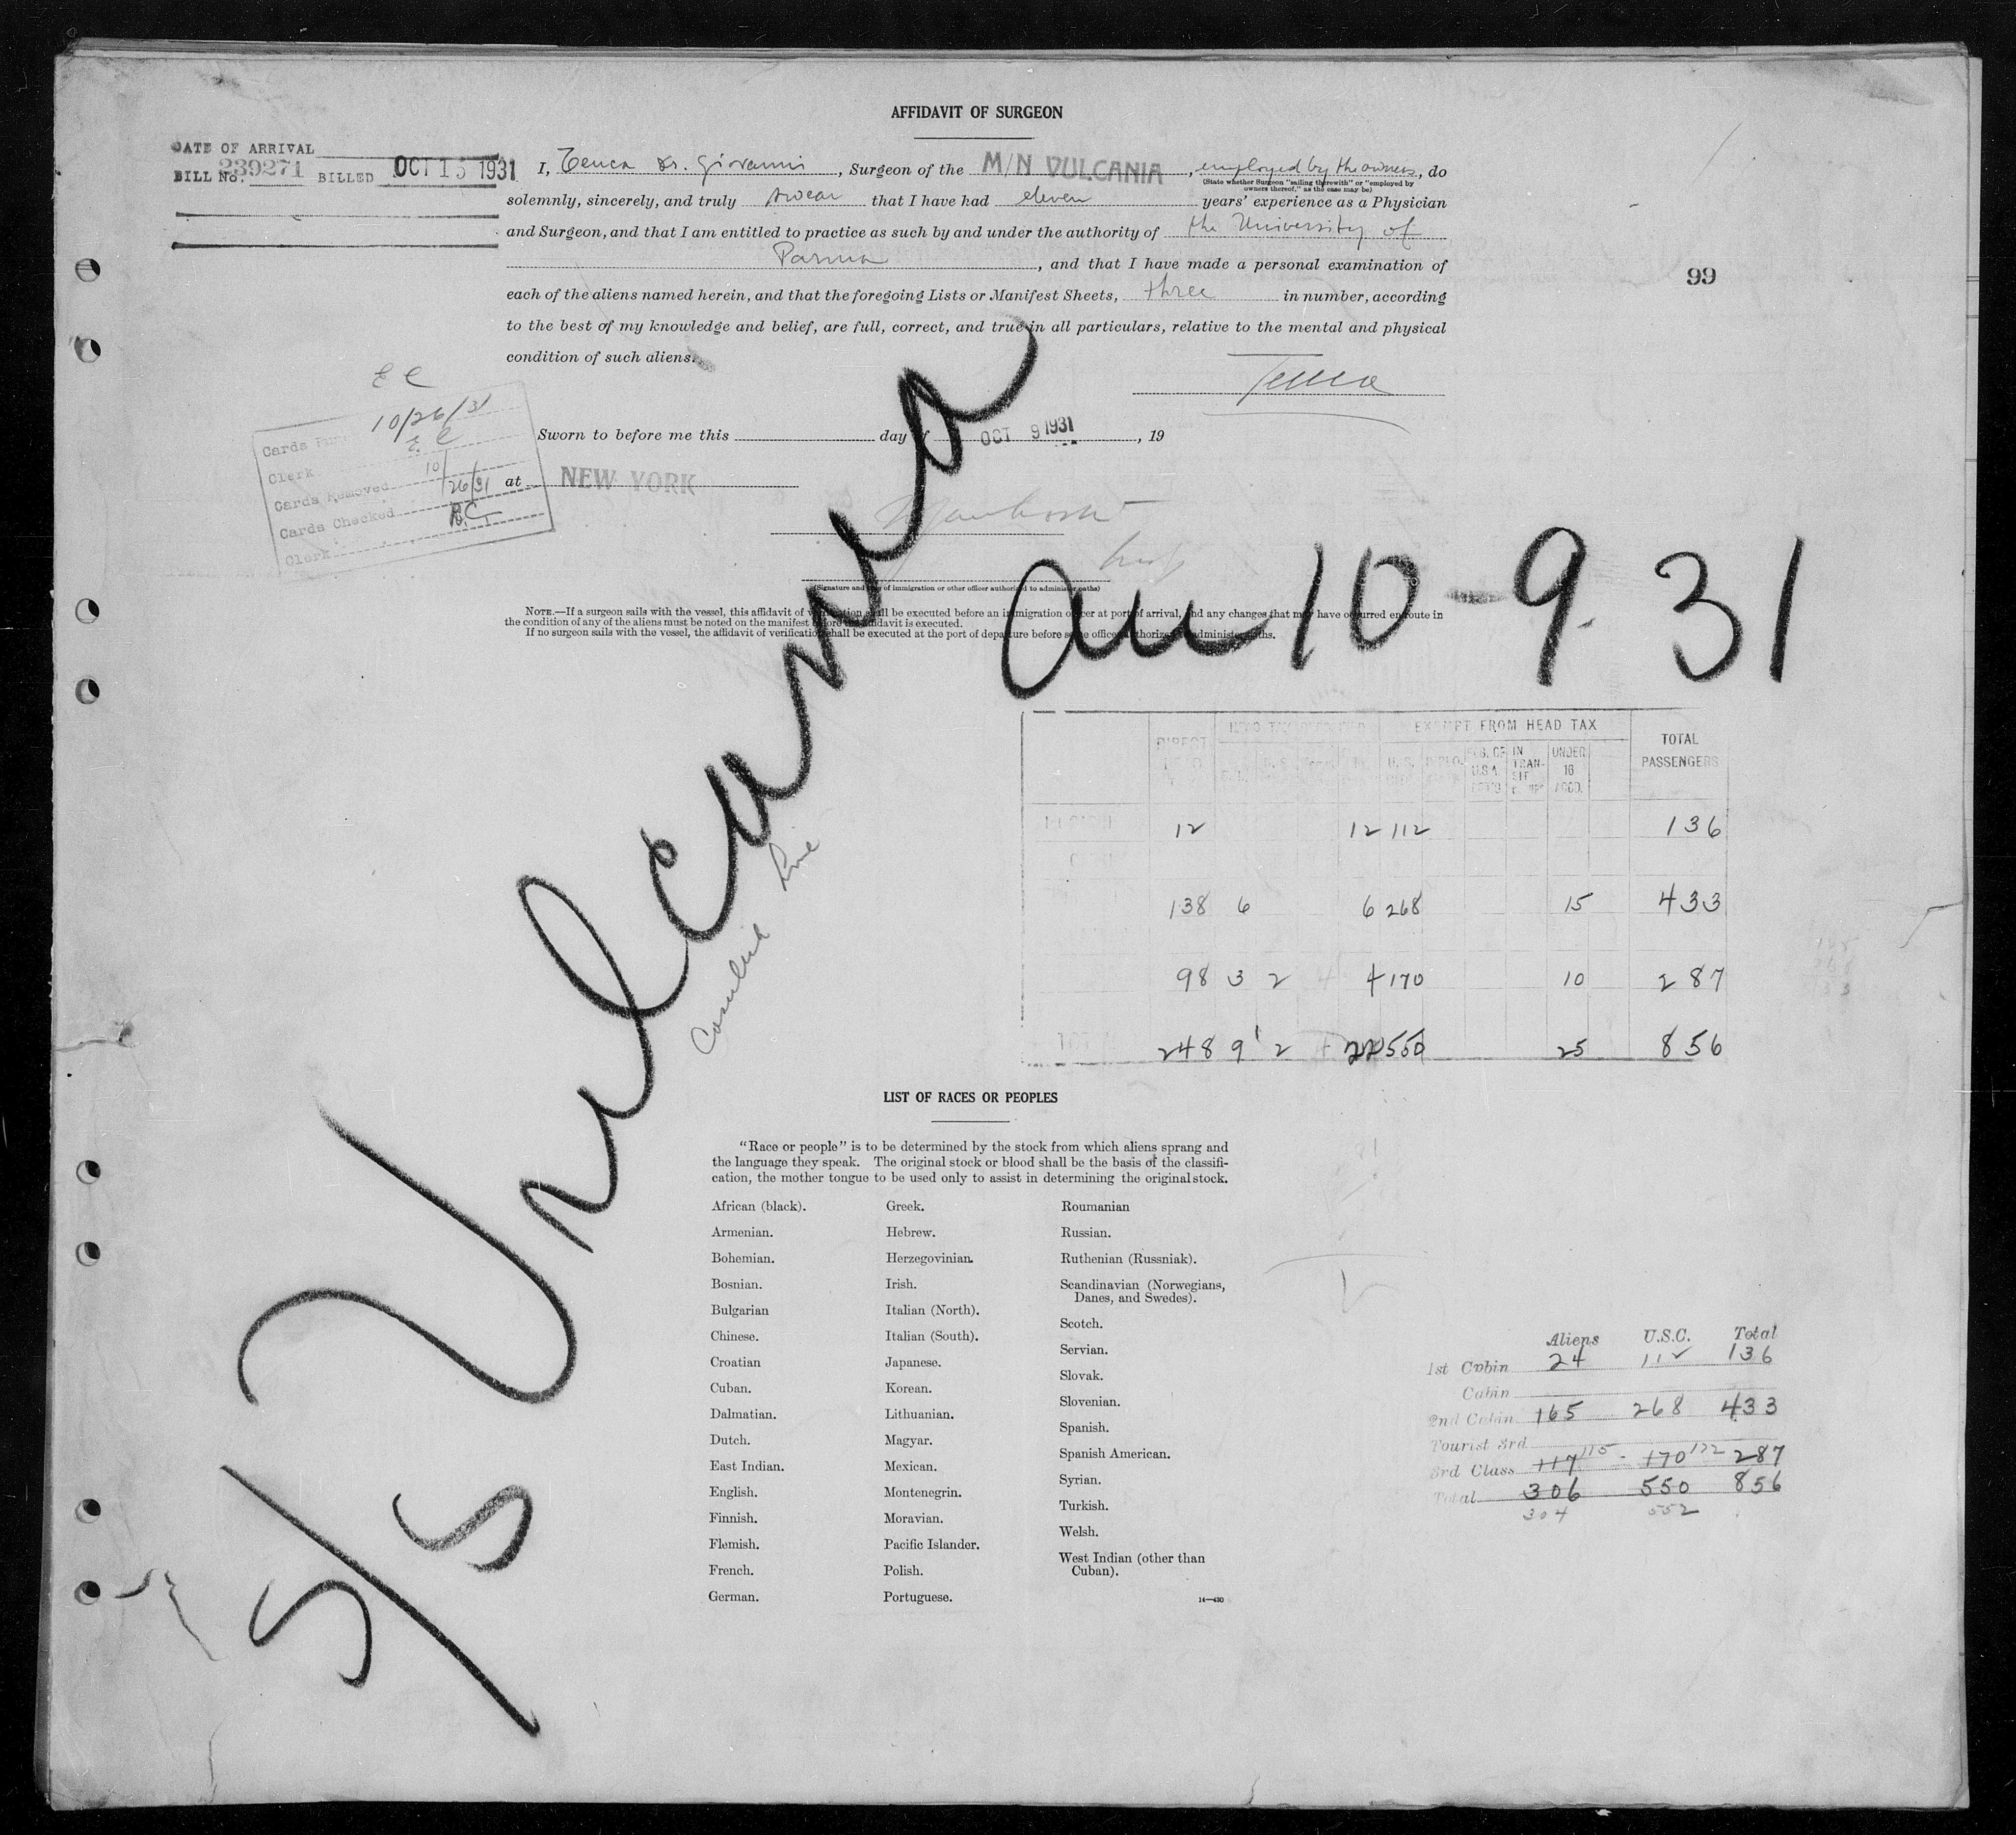 AFFIDAVIT OF SURGEON
DATE OF ARRIVAL
BILL No. 239271 BILLED OCT 15 1931
I, Tenca Dr. Giovanni, Surgeon of the M/N VULCANIA, employed by the owners, do
(State whether Surgeon "sailing therewith" or "employed by
owners thereof," as the case may be)
solemnly, sincerely, and truly swear that I have had eleven years' experience as a Physician
and Surgeon, and that I am entitled to practice as such by and under the authority of the University of
Parma, and that I have made a personal examination of
99
each of the aliens named herein, and that the foregoing Lists or Manifest Sheets, three in number, according
to the best of my knowledge and belief, are full, correct, and true in all particulars, relative to the mental and physical
condition of such aliens.
Tenca
E C
Cards 10/26/31
Clerk E. C
Cards Removed 10/26/31
Cards Checked
Clerk
Sworn to before me this day of OCT 9 1931, 19
at NEW YORK
(Signature and of immigration or other officer authorized to administer oaths)
NOTE.—If a surgeon sails with the vessel, this affidavit of verification shall be executed before an immigration officer at port of arrival, and any changes that may have occurred en route in
the condition of any of the aliens must be noted on the manifest before the affidavit is executed.
If no surgeon sails with the vessel, the affidavit of verification shall be executed at the port of departure before some officer authorized to administer oaths.
S/S Vulcania
Cosulich Line
Arr 10-9. 31
EXEMPT FROM HEAD TAX
TOTAL PASSENGERS
DIRECT
U. S.
U.S.A.
IN TRANSIT
UNDER 16
12 12 112 136
138 6 6 268 15 433
98 3 2 4 170 10 287
248 9 2 22 550 25 856
LIST OF RACES OR PEOPLES
"Race or people" is to be determined by the stock from which aliens sprang and
the language they speak. The original stock or blood shall be the basis of the classifi-
cation, the mother tongue to be used only to assist in determining the original stock.
African (black).
Armenian.
Bohemian.
Bosnian.
Bulgarian
Chinese.
Croatian
Cuban.
Dalmatian.
Dutch.
East Indian.
English.
Finnish.
Flemish.
French.
German.
Greek.
Hebrew.
Herzegovinian.
Irish.
Italian (North).
Italian (South).
Japanese.
Korean.
Lithuanian.
Magyar.
Mexican.
Montenegrin.
Moravian.
Pacific Islander.
Polish.
Portuguese.
Roumanian
Russian.
Ruthenian (Russniak).
Scandinavian (Norwegians,
Danes, and Swedes).
Scotch.
Servian.
Slovak.
Slovenian.
Spanish.
Spanish American.
Syrian.
Turkish.
Welsh.
West Indian (other than
Cuban).
14—430
Aliens U.S.C. Total
1st Cabin 24 112 136
Cabin
2nd Cabin 165 268 433
Tourist 3rd
3rd Class 117 115 170 172 287
Total 306 550 856
304 552